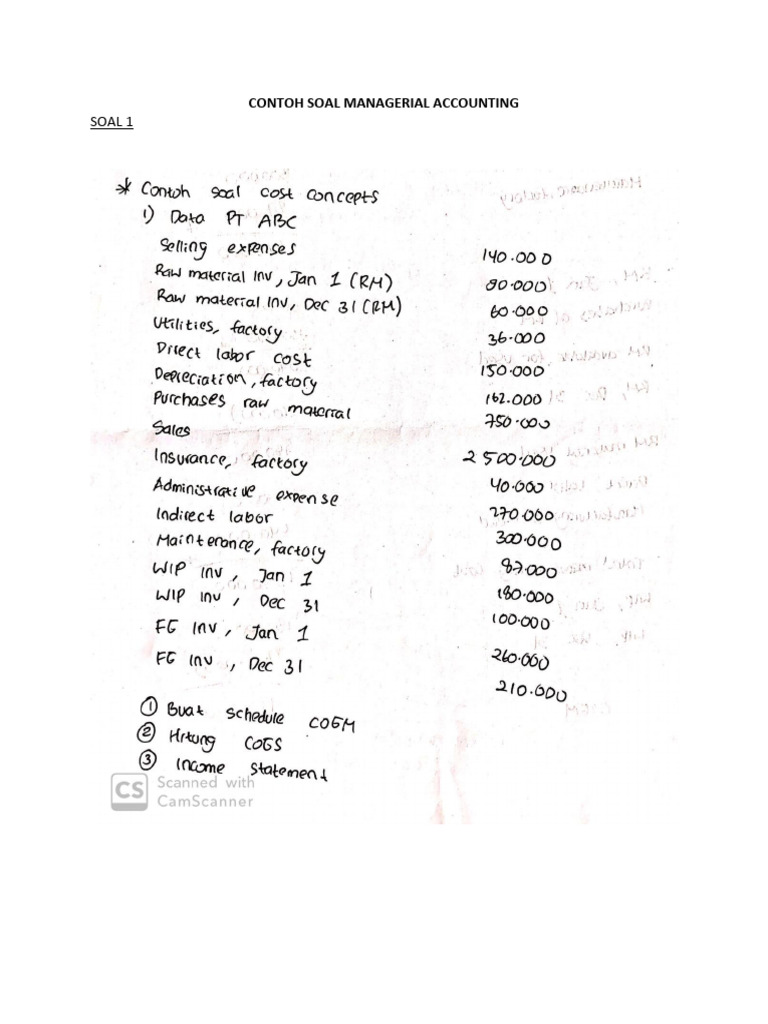 CONTOH SOAL MANAGERIAL ACCOUNTING
SOAL 1
* Contoh soal cost concepts
1) Data PT ABC
Selling expenses 140.000
Raw material Inv, Jan 1 (RM) 90.000
Raw material Inv, Dec 31 (RM) 60.000
Utilities, factory 36.000
Direct labor cost 150.000
Depreciation, factory 162.000
Purchases raw material 750.000
Sales 2 500.000
Insurance, factory 40.000
Administrative expense 270.000
Indirect labor 300.000
Maintenance, factory 87.000
WIP Inv, Jan 1 180.000
WIP Inv, Dec 31 100.000
FG Inv, Jan 1 260.000
FG Inv, Dec 31 210.000
① Buat schedule COGM
② Hitung COGS
③ Income statement
CS Scanned with
CamScanner